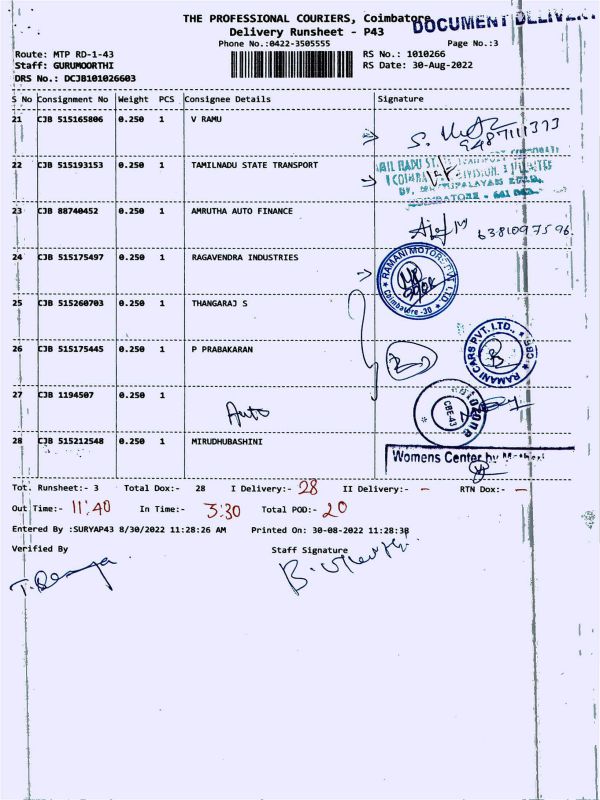 THE PROFESSIONAL COURIERS, Coimbatore
DOCUMENT DELIVERY
Delivery Runsheet - P43
Phone No.:0422-3505555
Page No.:3
Route: MTP RD-1-43
RS No.: 1010266
Staff: GURUMOORTHI
RS Date: 30-Aug-2022
DRS No.: DCJB101026603
S No Consignment No Weight PCS Consignee Details Signature
21 CJB 515165806 0.250 1 V RAMU
9487111373
22 CJB 515193153 0.250 1 TAMILNADU STATE TRANSPORT
23 CJB 88740452 0.250 1 AMRUTHA AUTO FINANCE
6381097596
24 CJB 515175497 0.250 1 RAGAVENDRA INDUSTRIES
RAMANI MOTORS PVT. LTD. Coimbatore -30
25 CJB 515260703 0.250 1 THANGARAJ S
26 CJB 515175445 0.250 1 P PRABAKARAN
RAMANI CARS PVT. LTD., CBE
27 CJB 1194507 0.250 1
Auto
CBE-43
28 CJB 515212548 0.250 1 MIRUDHUBASHINI
Womens Center by
Tot. Runsheet:- 3 Total Dox:- 28 I Delivery:- 28 II Delivery:- - RTN Dox:- -
Out Time:- 11:40 In Time:- 3:30 Total POD:- 20
Entered By :SURYAP43 8/30/2022 11:28:26 AM Printed On: 30-08-2022 11:28:38
Verified By Staff Signature